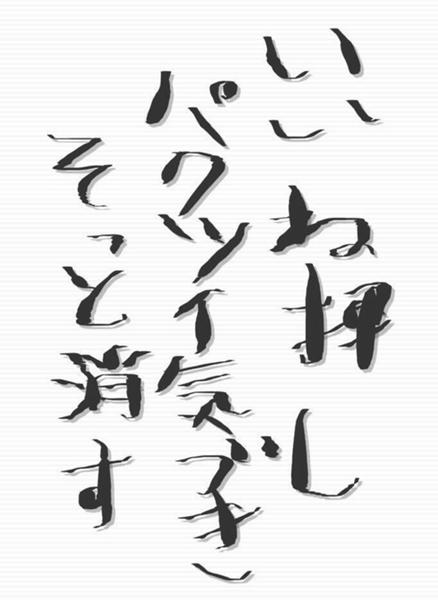 いいね押し
パクツイ気づき
そっと消す